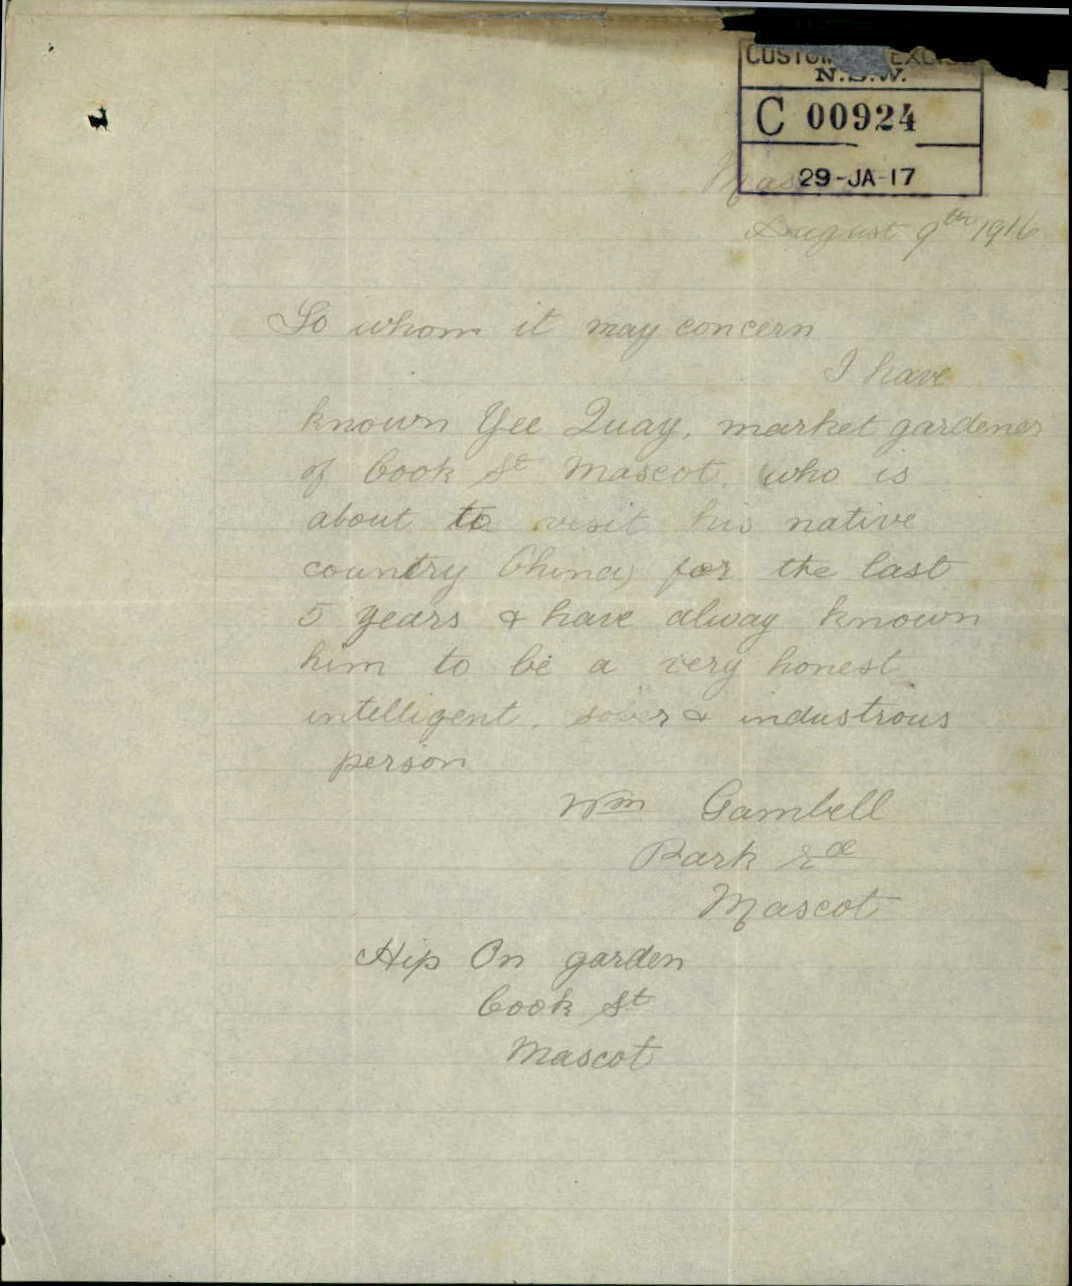 CUSTOMS EXCISE
N.S.W.
C 00924
29-JA-17
Mascot
August 9th 1916
To whom it may concern
I have
known Yee Quay, market gardener
of Cook St Mascot, (who is
about to visit his native
country China) for the last
5 years & have alway known
him to be a very honest
intelligent, sober & industrous
person
Wm Gambell
Park rd
Mascot
Hip On garden
Cook St
Mascot